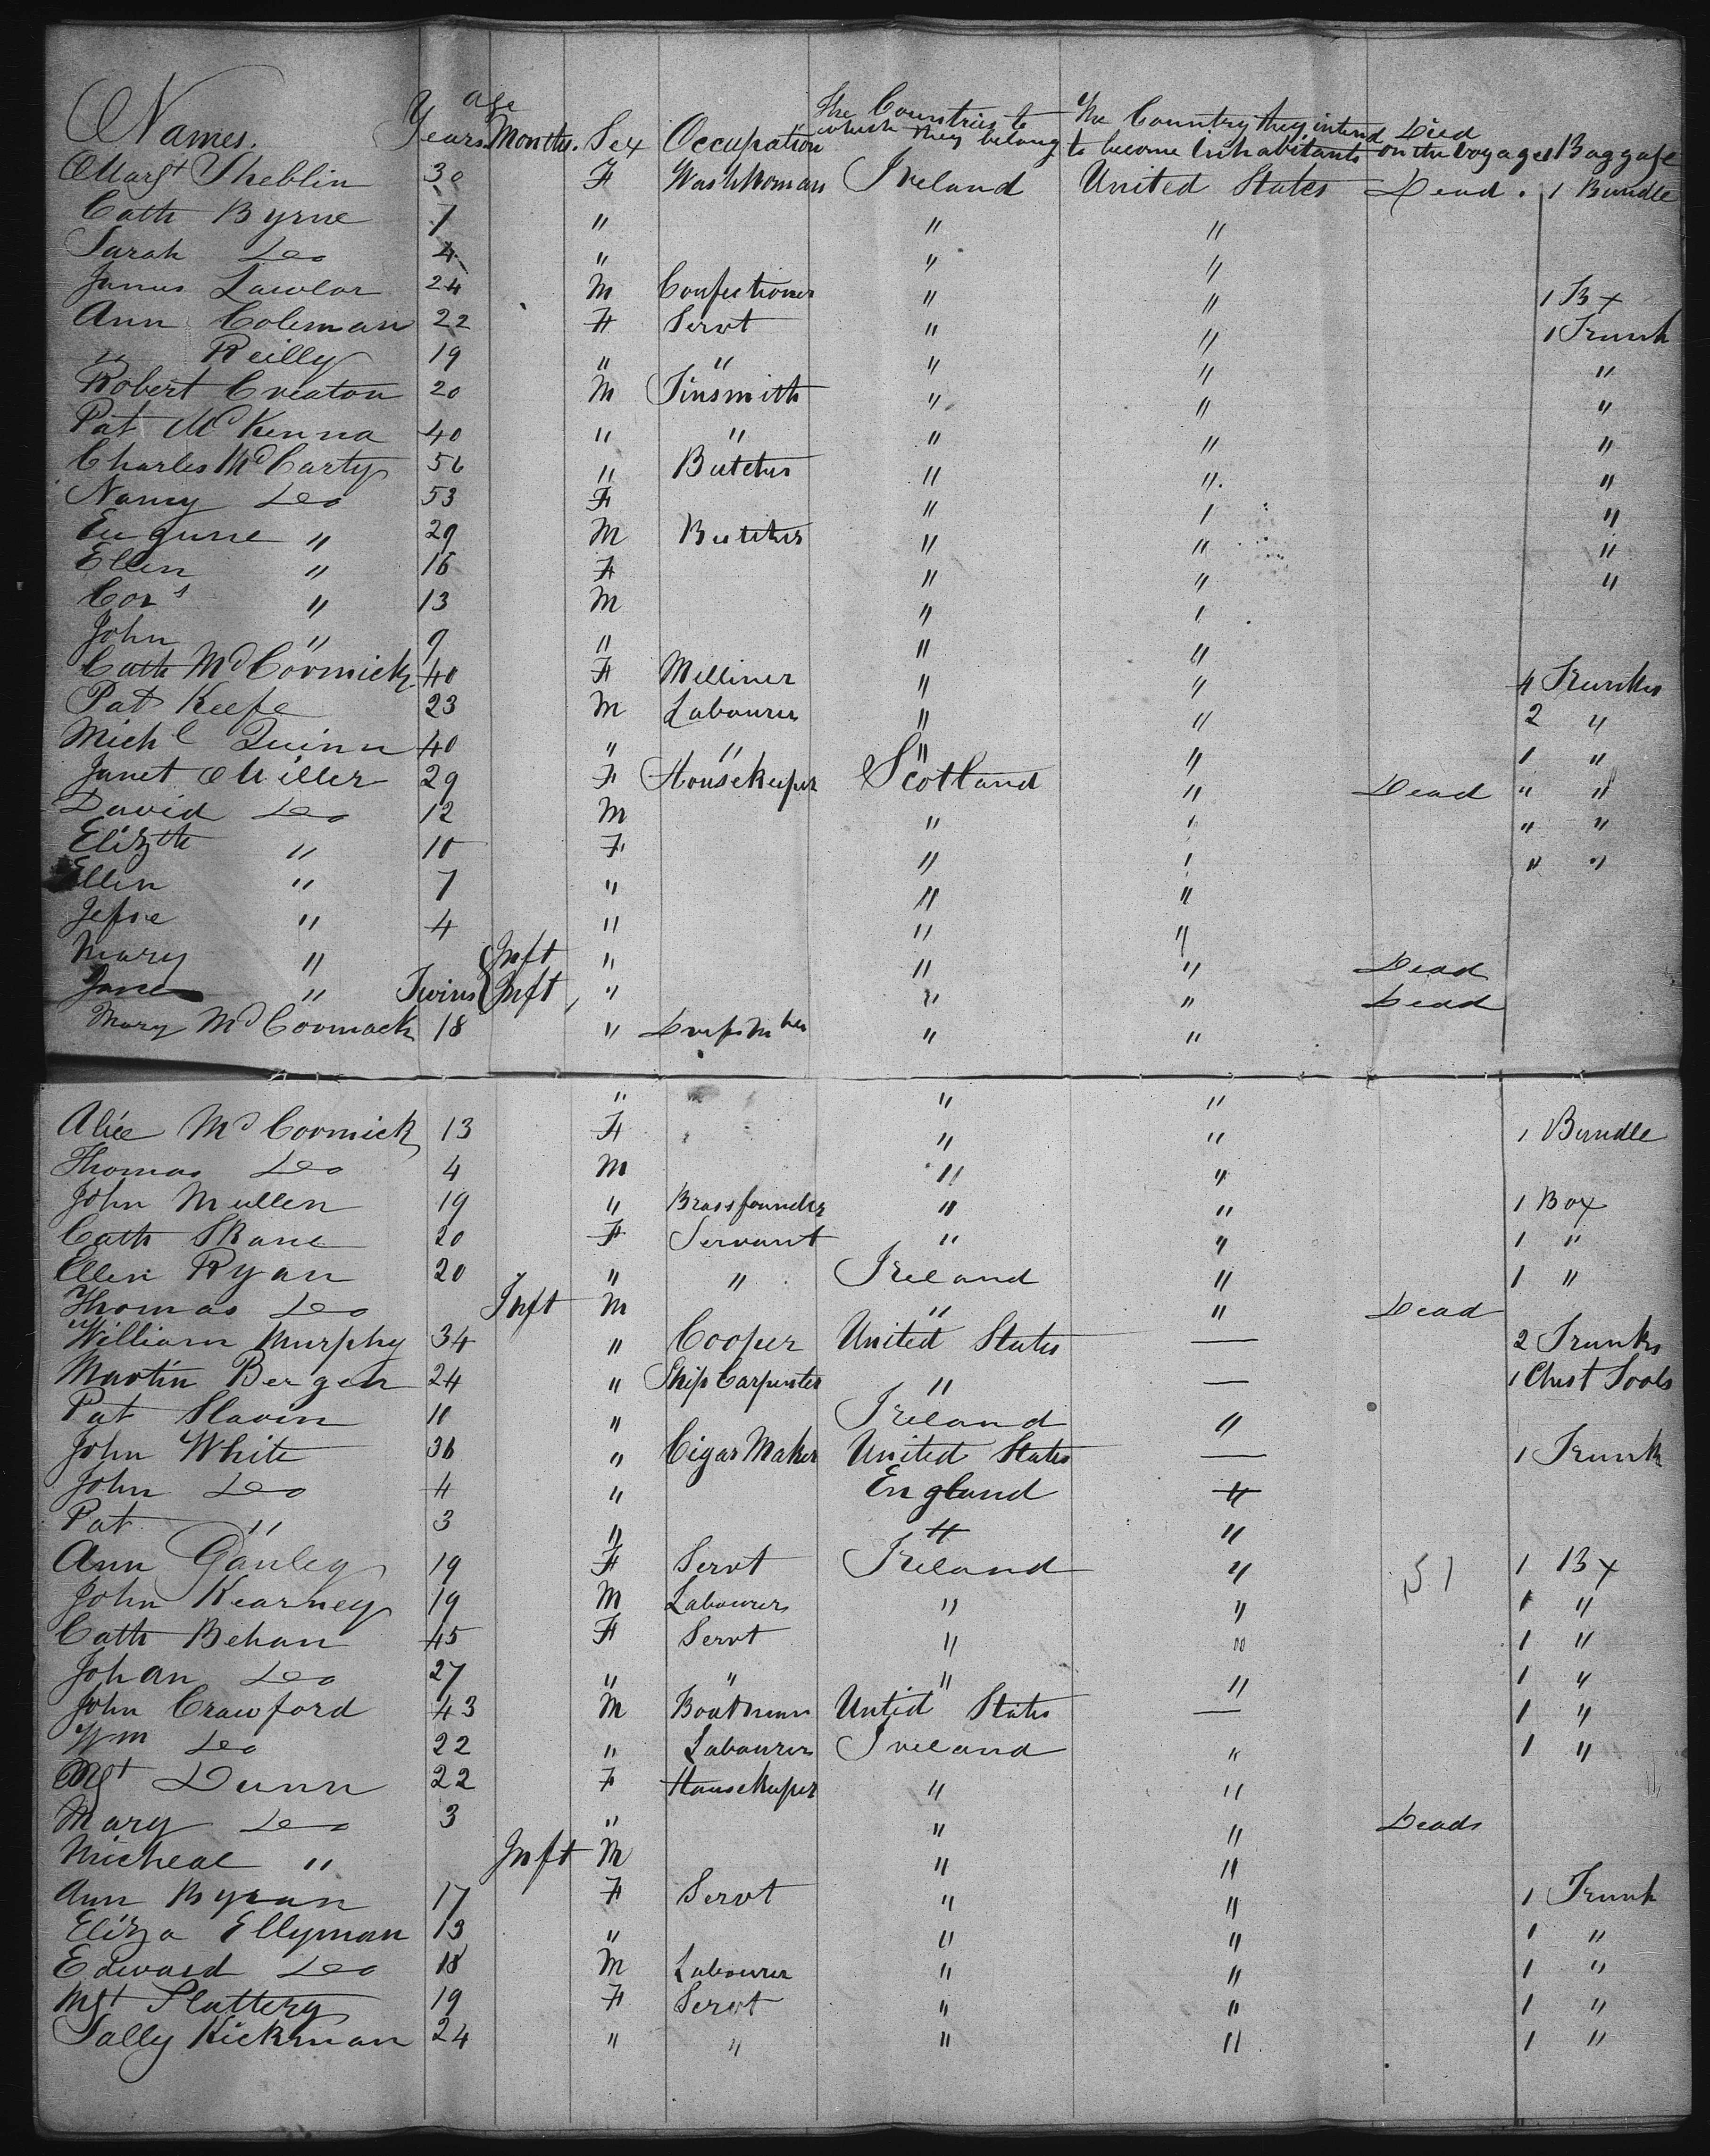 Names. Age Years. Months. Sex Occupation The Countries to which they belong The Country they intend to become Inhabitants Died on the Voyage Baggage
Margt Sheblin 30 F Wash Woman Ireland United States Dead. 1 Bundle
Cath Byrne 7 " " "
Sarah Do 4 " " "
James Lawlor 24 M Confectioner " " 1 Bx
Ann Coleman 22 F Servt " " 1 Trunk
" Reilly 19 " " " " "
Robert Creaton 20 M Tinsmith " " "
Pat McKenna 40 " " " " "
Charles McCarty 56 " Butcher " " "
Nancy Do 53 F " " "
Eugune " 29 M Butcher " " "
Ellen " 16 F " " "
Cors " 13 M " "
John " 9 " " "
Cath McCormick 40 F Milliner " " 4 Trunks
Pat Keefe 23 M Labourer " " 2 "
Michl Quinn 40 " " " " 1 "
Janet Miller 29 F Housekeeper Scotland " Dead " "
David Do 12 M " " " "
Elizth " 10 F " " " "
Ellen " 7 " " "
Jessie " 4 " " "
Mary " Inft " " " Dead
Jane " Twins Inft " " " Dead
Mary McCormack 18 " Dressmker " "
" " "
Alice McCormick 13 F " " 1 Bundle
Thomas Do 4 M " "
John Mullen 19 " Brassfounder " " 1 Box
Cath Skane 20 F Servant " " 1 "
Ellen Ryan 20 " " Ireland " 1 "
Thomas Do Inft M " " Dead
William Murphy 34 " Cooper United States — 2 Trunks
Martin Bergen 24 " Ship Carpenter " — 1 Chest Tools
Pat Slavin 10 " Ireland "
John White 36 " Cigar Maker United States — 1 Trunk
John Do 4 " England "
Pat " 3 " " "
Ann Ganley 19 F Servt Ireland " 51 1 Bx
John Kearney 19 M Labourer " " 1 "
Cath Behan 45 F Servt " " 1 "
Johan Do 27 " " " " 1 "
John Crawford 43 M Boatman Untid States — 1 "
Wm Do 22 " Labourer Ireland " 1 "
Mgt Dunn 22 F Housekeeper " "
Mary Do 3 " " " Dead
Micheal " Inft M " "
Ann Byran 17 F Servt " " 1 Trunk
Eliza Ellyman 13 " " " 1 "
Edward Do 18 M Labourer " " 1 "
Mgt Slattery 19 F Servt " " 1 "
Sally Kickman 24 " " " " 1 "